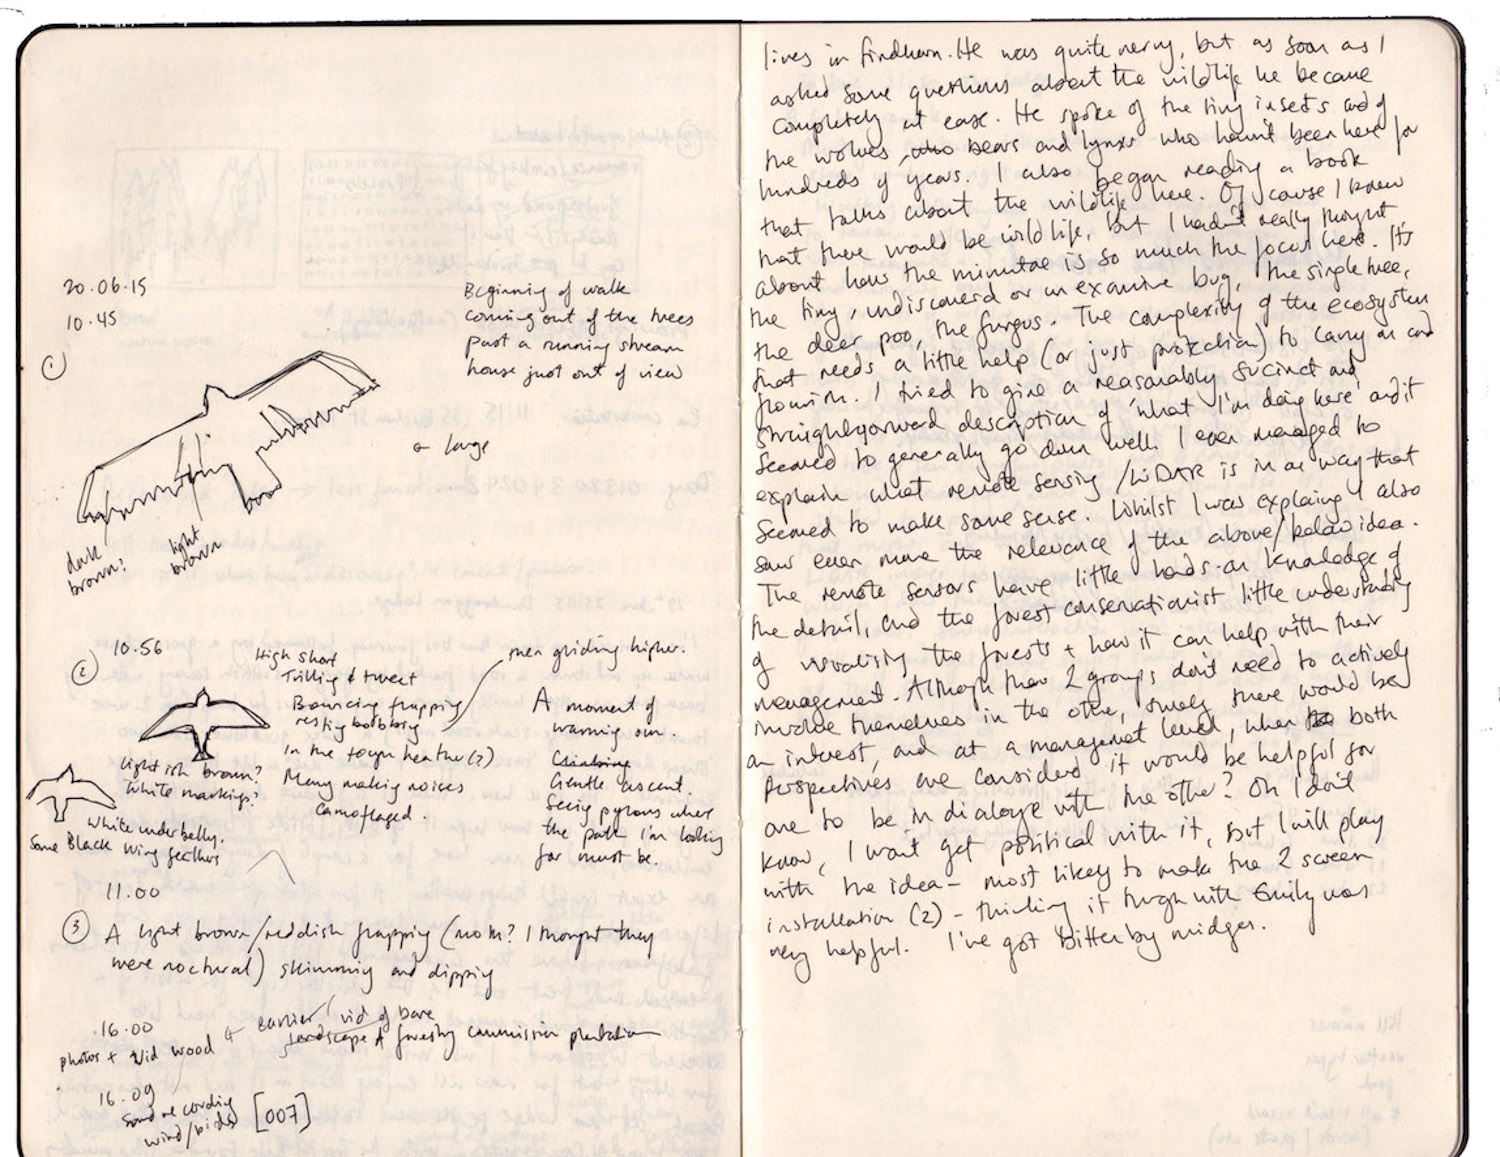 20.06.15
10.45
①
Beginning of walk
coming out of the trees
past a running stream
house just out of view
← large
dark
brown?
light
brown
②
10.56
High short
Trilling & tweet
Bouncing flapping
resting bobbing
in the tough heather(?)
Many making noises
camoflaged.
then gliding higher.
A moment of
warming our.
Climbing
Gentle ascent.
Seing pylons where
the path I'm looking
for must be.
light ish brown?
White markings?
White underbelly.
Some Black wing feathers
11.00
③
A light brown/reddish flapping (moth? I thought they
were noctural) skimming and dipping
16.00
photos + vid wood
+ earlier vid of bare
landscape & forestry commission plantation
16.09
Sound recording
wind/birds [007]
lives in Findhorn. He was quite nervy, but as soon as I
asked some questions about the wildlife he became
completely at ease. He spoke of the tiny insects and of
the wolves, who bears and lynxs who havn't been here for
hundreds of years. I also began reading a book
that talks about the wildlife here. Of cause I knew
that there would be wild life, but I hadn't really thought
about how the minutae is so much the focus here. It's
the tiny, undiscoverd or un examine bug, the single tree,
the deer poo, the fungus. The complexity of the ecosystem
that needs a little help (or just protection) to carry on and
flourish. I tried to give a reasonably succinct and
straightforward description of 'what I'm doing here' and it
seemed to generally go down well. I even managed to
explain what remote sensing /LiDAR is in a way that
seemed to make some sense. Whilst I was explaing I also
saw even more the relevance of the above/below idea.
The remote sensors have little hands-on knowledge of
the detail, and the forest conservationist little understandig
of visualising the forests + how it can help with their
management. Although then 2 groups don't need to actively
involve themselves in the other, surely there would be
an interest, and at a managemet level, when both
perspectives are considerd it would be helpful for
one to be in dialoge with the other? Oh I don't
know, I wont get political with it, but I will play
with the idea - most likely to make the 2 screen
installation (2) - thinking it trugh with Emily was
very helpful. I've got bitten by midges.